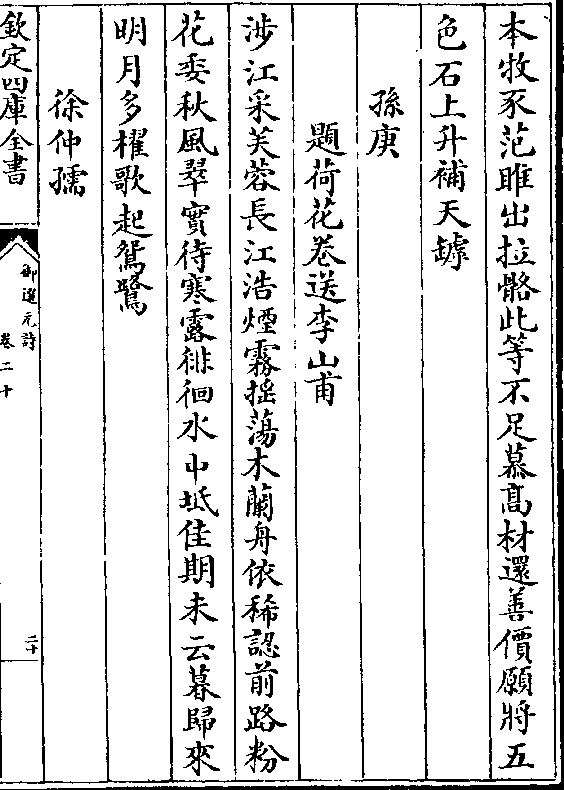 本牧豕范雎出拉骼此等不足慕髙材還善價願將五
色石上升補天罅
孫庚
題荷花卷送李山甫
涉江采芙蓉長江浩煙霧摇蕩木蘭舟依稀認前路粉
花委秋風翠實待寒露徘徊水中坻佳期未云暮歸來
明月多櫂歌起鴛鷺
徐仲孺
欽定四庫全書
御選元詩
卷二十
二十